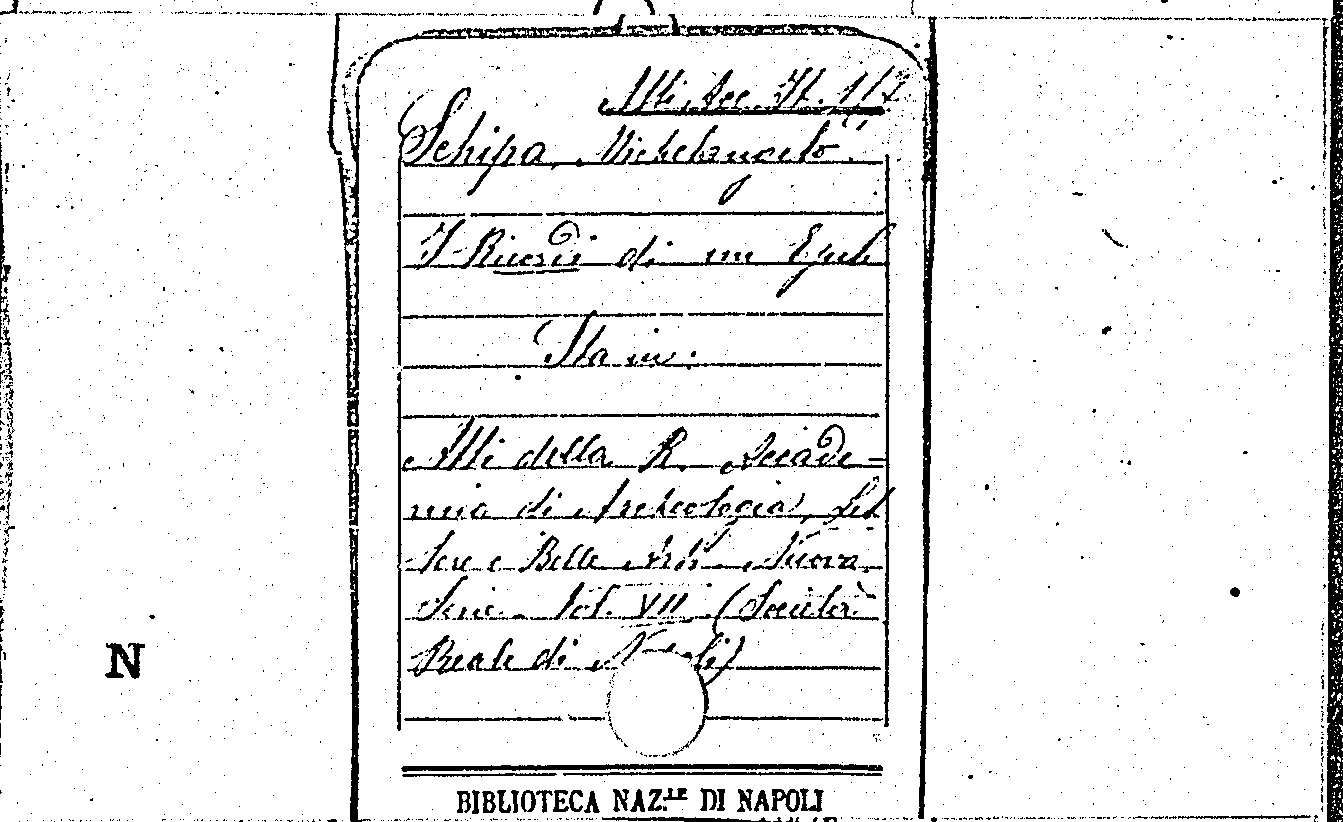 Atti Acc. It. 1/7
Schipa, Michelangelo
I Ricordi di un
Atti della R. Accade=
mia di Archeologia, Let
tere e Belle Arti. Nuova
Serie. Vol. VII (Società
Reale di Napoli)
N
BIBLIOTECA NAZ.LE DI NAPOLI